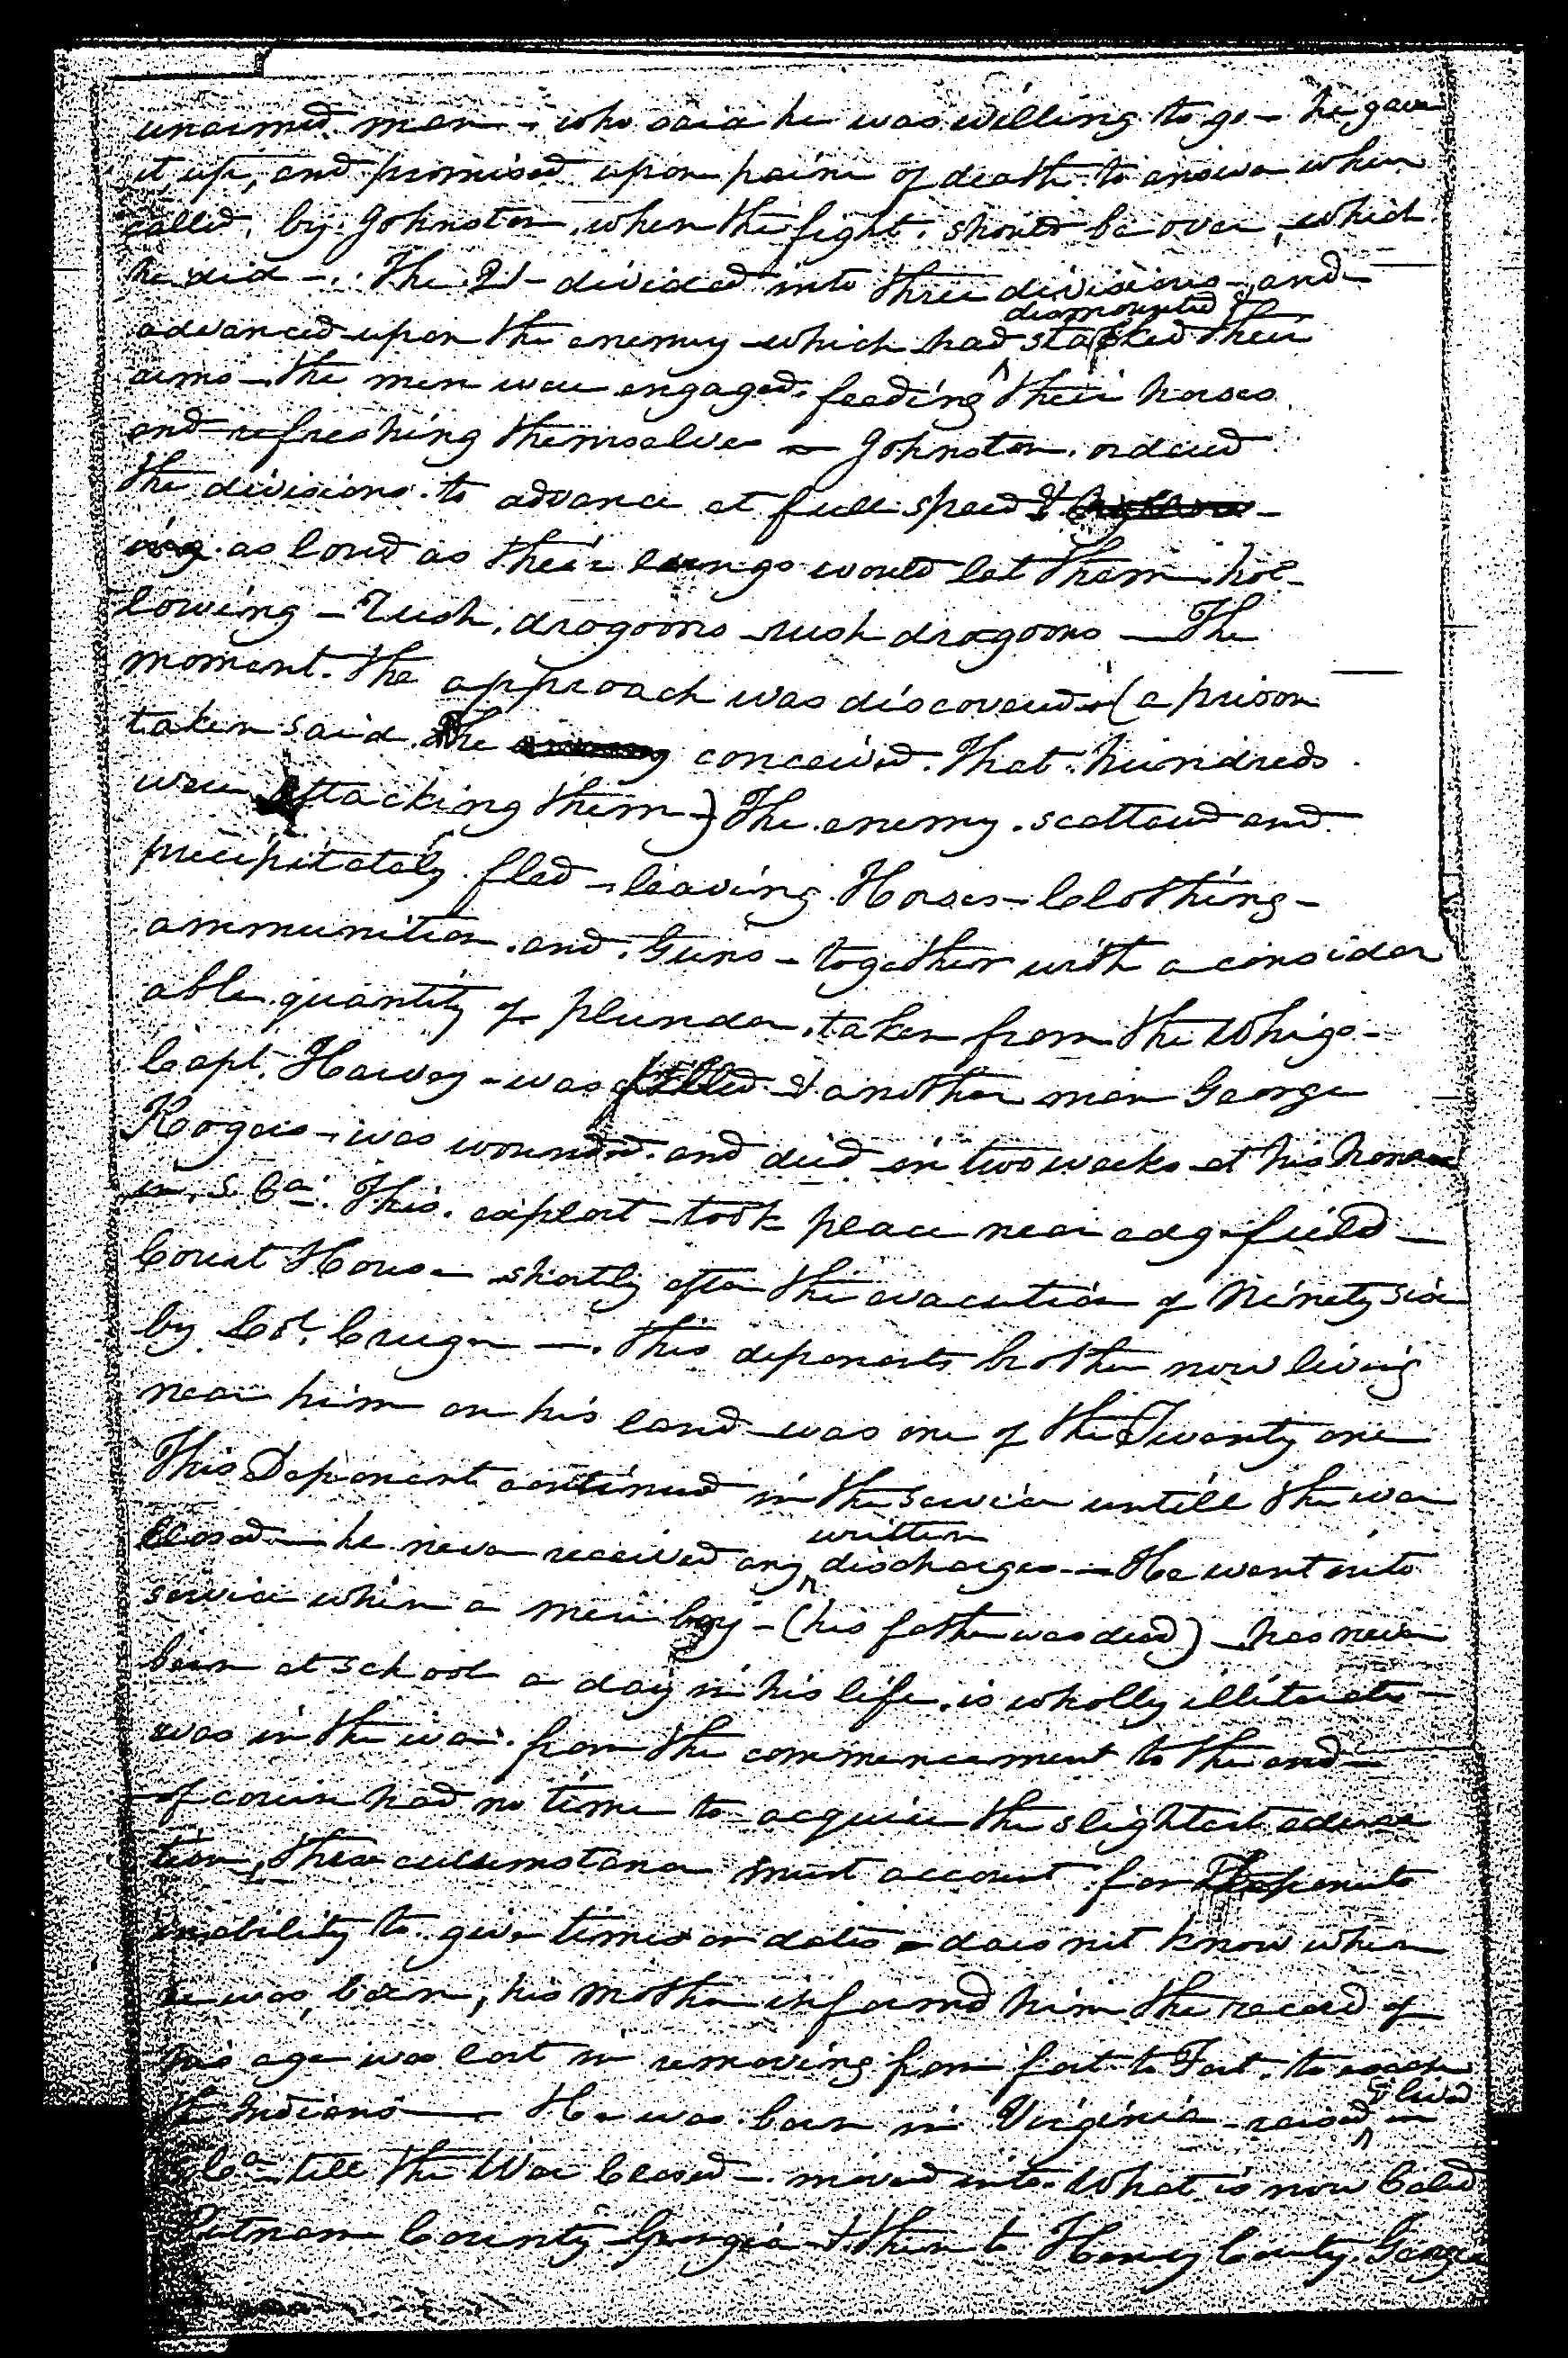 unarmed man - who said he was willing to go - he gave
it up, and promised upon paine of death to answer when
called, by Johnston, when the fight should be over, which
he did -. The 21 - divided into three divisions - and
advanced upon the enemy which had dismounted & stacked their
arms - the men were engaged feeding their horses
and refreshing themselves - Johnston ordered
the divisions to advance at full speed &
as loud as their lungs would let them hol-
lowing - Rush, dragoons rush dragoons - The
moment the approach was discovered - (a prison
taken said he conceived that hundreds
were attacking them -) The enemy scattered and
precipitately fled - leaving Horses - Clothing -
ammunition and Guns - together with a consider
able quantity of plunder, taken from the Whigs -
Capt. Harvey - was killed & another man George
Rogers - was wounded and died in two weeks at his home
in S. Ca. This exploit took place near edgefield -
Court House shortly after the evacuation of Ninety six
by Col. Cruger -. This deponents brother now living
near him on his land was one of the Twenty one
This Deponent continued in the service untill the war
Closed - he never received any written discharges - He went into
service when a mere boy - (his father was dead) - has never
been at school a day in his life, is wholly illiterate -
was in the war from the commencement to the end -
of course had no time to acquire the slightest educa
tion, these circumstance must account for Deponents
inability to give times or dates - does not know when
he was born, his Mother informed him the record of
his age was lost in removing from fort to Fort, to
the Indians - He was born in Virginia - raised & lived in
S. Ca - till the War Closed - moved into What is now Called
Putnam County Georgia & then to Henry County Georgia